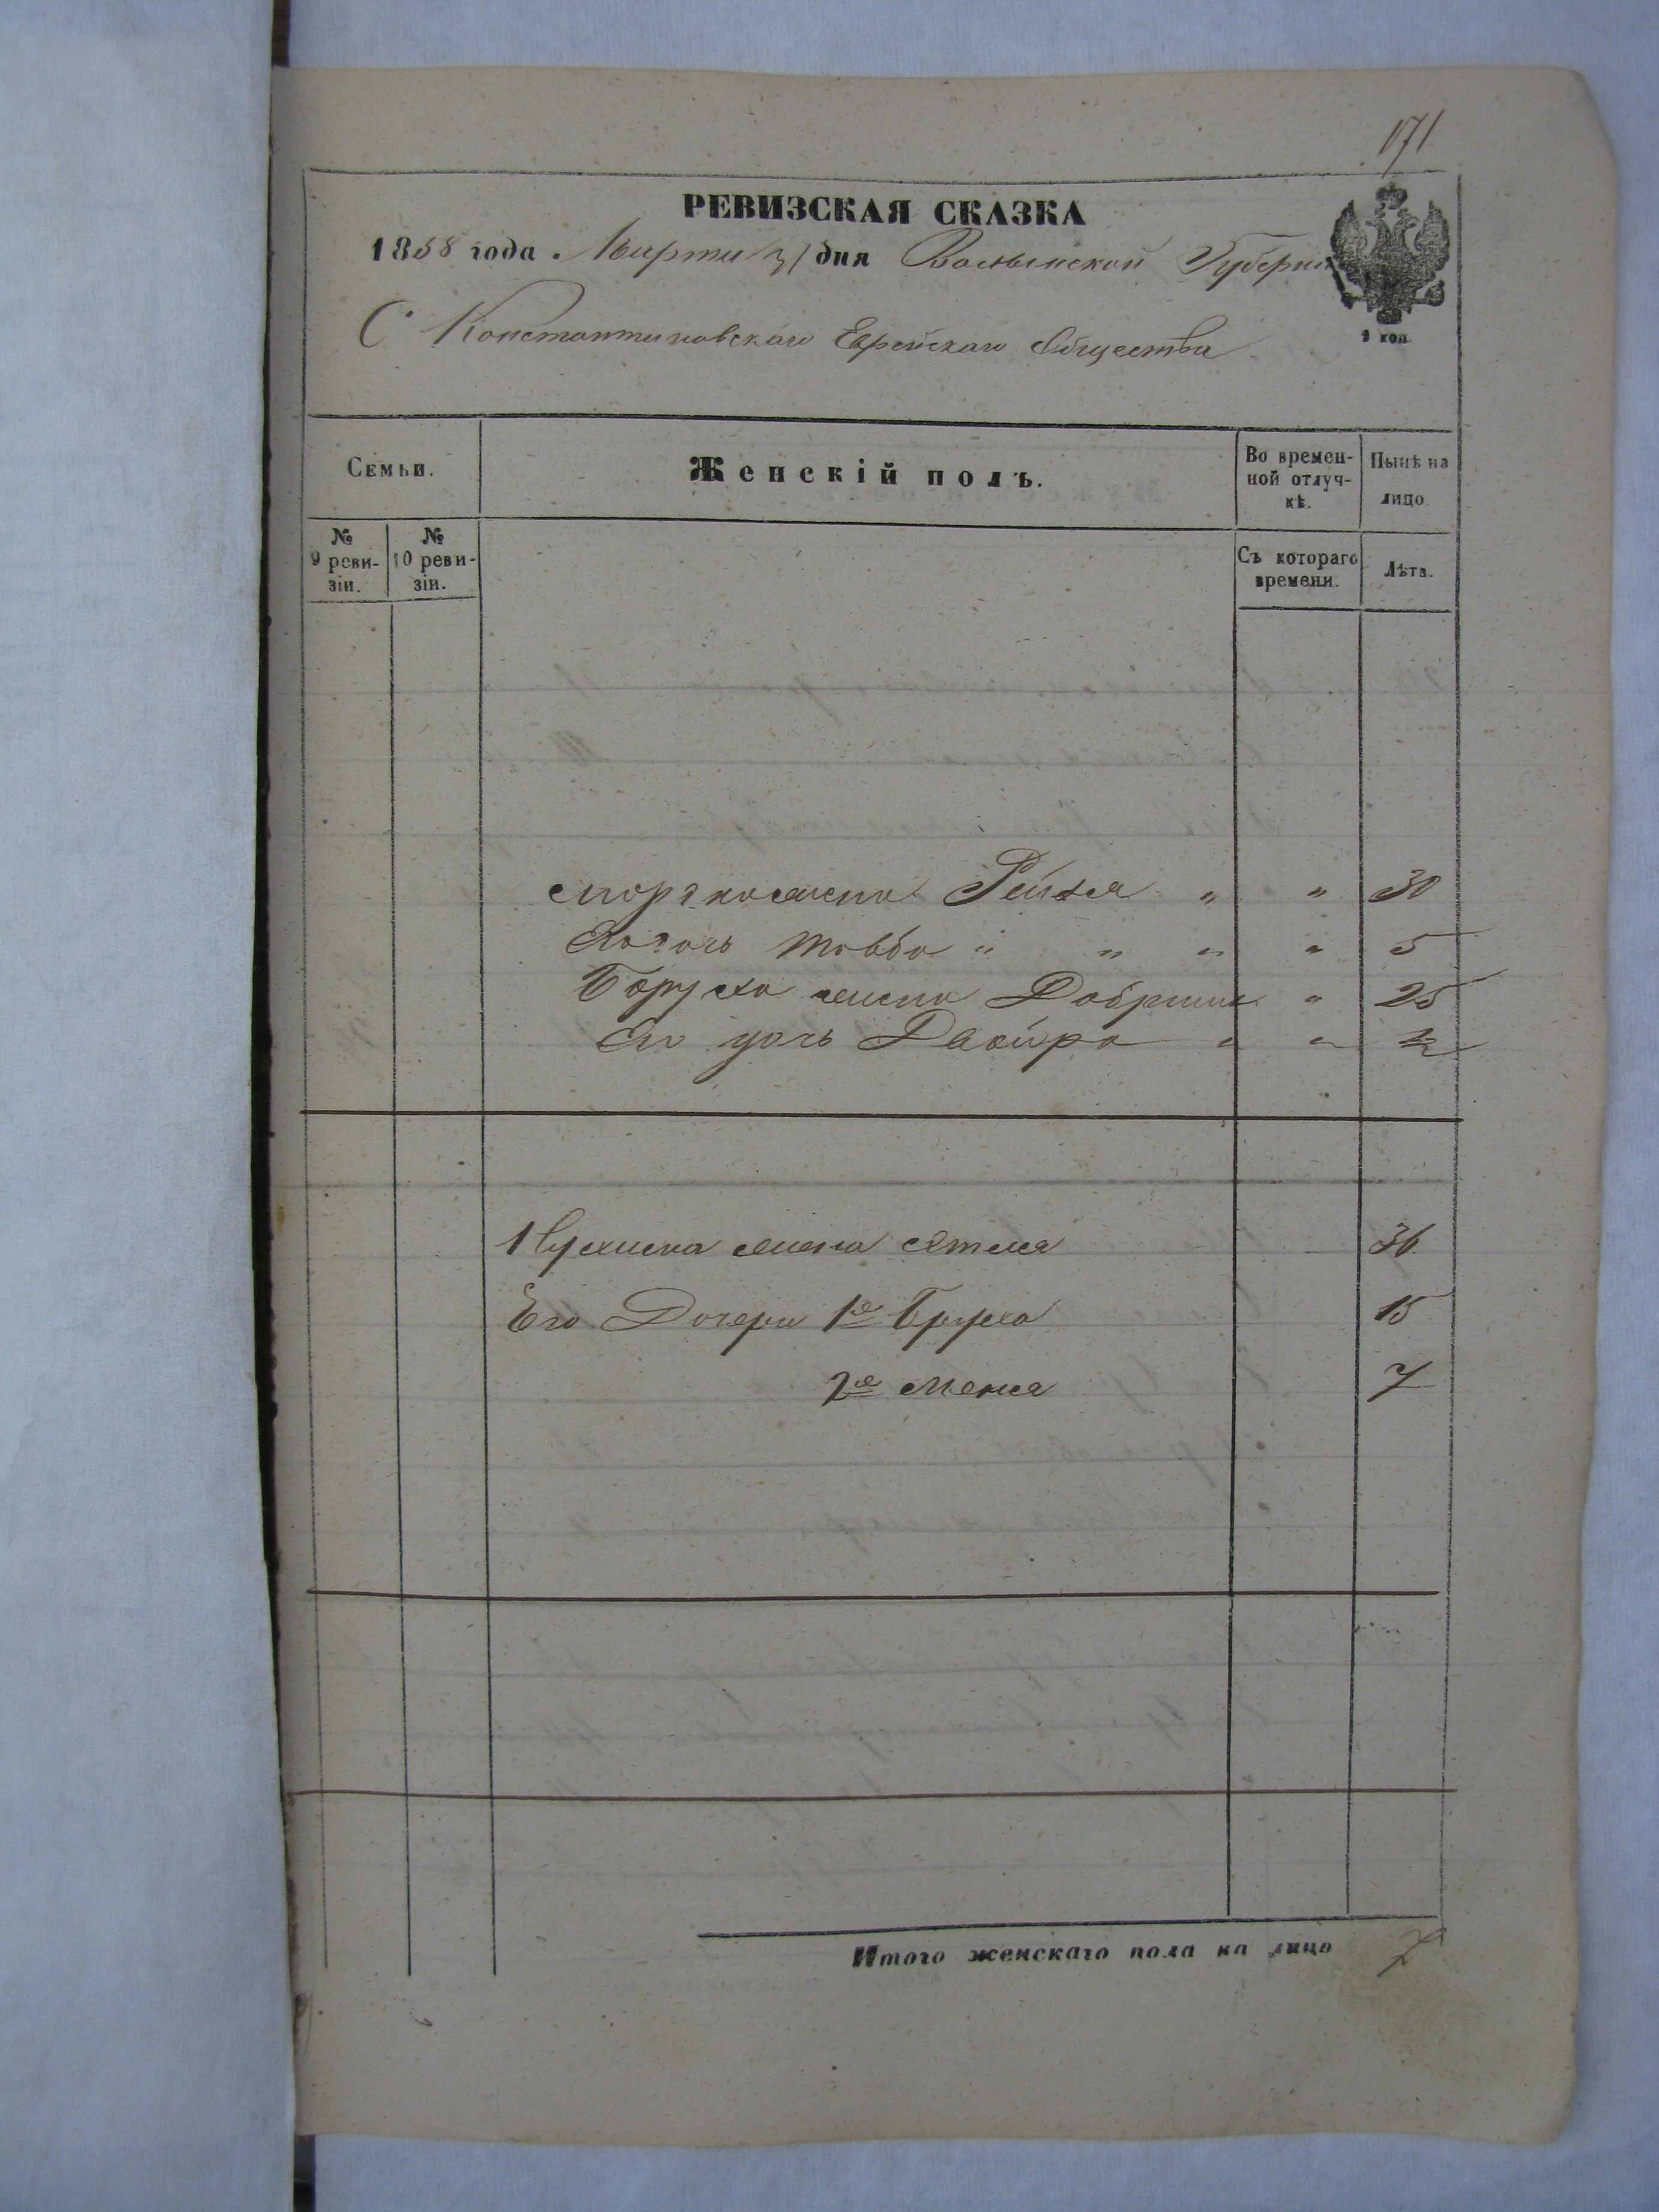 171
РЕВИЗСКАЯ СКАЗКА
1858 года Марта 31 дня Волынской Губерніи
С Константиновскаго Еврейскаго Общества
2 коп.
Семьи. Женскій полъ. Во времен-ной отлуч-кѣ. Нынѣ на лицо
№ 9 реви-зіи. № 10 реви-зіи. Съ котораго времени. Лѣта.
жена Рейзя " " 30
дочь Товба " " " " 5
Боруха жена Добриш " 25
Его дочь Двойра " " ½
жена Этля 36
Его Дочери 1е Бруха 15
2е 7
Итого женскаго пола на лицо 7